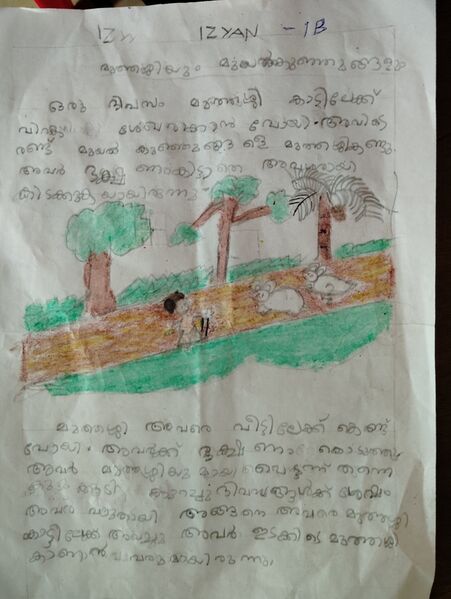 IZYAN - 1B
മുത്തശ്ശിയും മുയൽകുഞ്ഞുങ്ങളും
ഒരു ദിവസം മുത്തശ്ശി കാട്ടിലേക്ക്
ശേഖരിക്കാൻ പോയി. അവിടെ
രണ്ട് മുയൽ കുഞ്ഞുങ്ങളെ മുത്തശ്ശി കണ്ടു
അവർ ഭക്ഷണം കിട്ടാതെ അവശരായി
കിടക്കുകയായിരുന്നു.
മുത്തശ്ശി അവരെ വീട്ടിലേക്ക് കൊണ്ട്
പോയി. അവർക്ക് ഭക്ഷണം കൊടുത്തു
അവർ മുത്തശ്ശിയുമായി പെട്ടന്ന് തന്നെ
കുറച്ചു ദിവസങ്ങൾക്ക് ശേഷം
അവർ വലുതായി അങ്ങനെ അവരെ മുത്തശ്ശി
കാട്ടിലേക്ക് അയച്ചു അവർ ഇടക്കിടെ മുത്തശ്ശി
കാണാൻ വരുമായിരുന്നു.